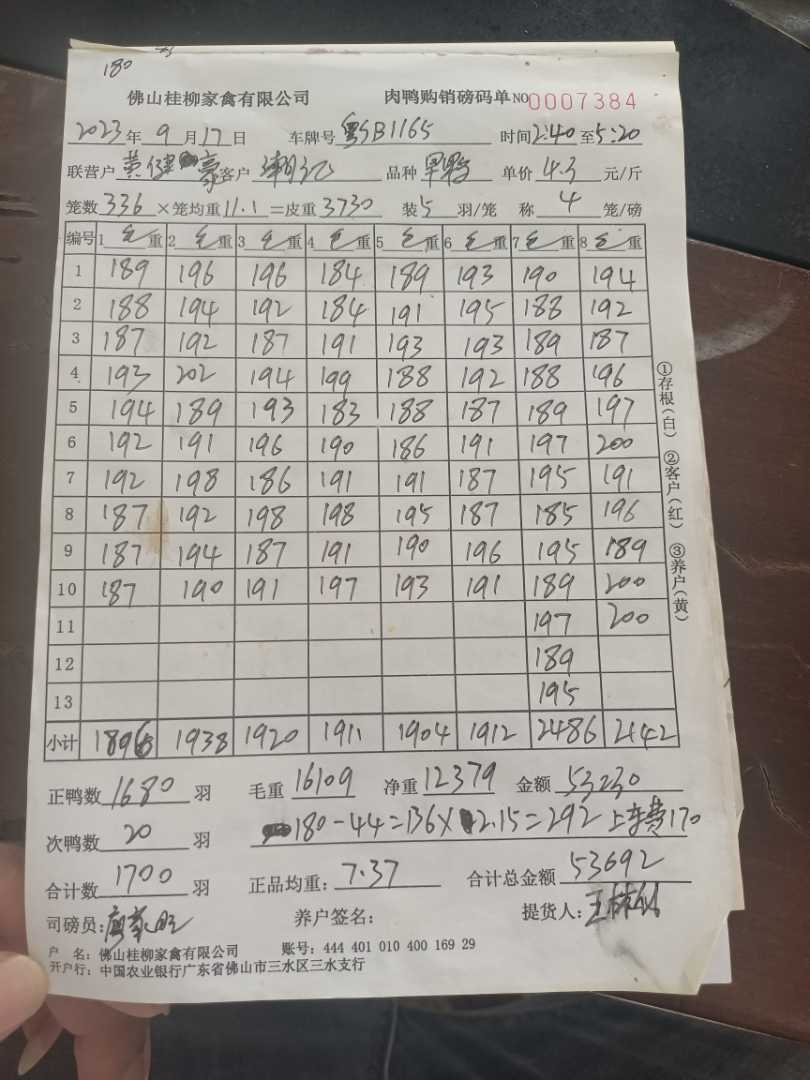 180
佛山桂柳家禽有限公司 肉鸭购销磅码单 NO 0007384
2023年 9月17日 车牌号 粤SB1165 时间2:40至5:20
联营户 黄健豪 客户 潮记 品种 单价 4.3 元/斤
笼数 336 ×笼均重 11.1 =皮重 3730 装 5 羽/笼 称 4 笼/磅
编号 1 毛重 2 毛重 3 毛重 4 毛重 5 毛重 6 毛重 7 毛重 8 毛重
1 189 196 196 184 189 193 190 194
2 188 194 192 184 191 195 188 192
3 187 192 187 191 193 193 189 187
4 193 202 194 199 188 192 188 196
5 194 189 193 183 188 187 189 197
6 192 191 196 190 186 191 197 200
7 192 198 186 191 191 187 195 191
8 187 192 198 198 195 187 185 196
9 187 194 187 191 190 196 195 189
10 187 190 191 197 193 191 189 200
11 197 200
12 189
13 195
小计 1896 1938 1920 1911 1904 1912 2486 2142
①存根(白) ②客户(红) ③养户(黄)
正鸭数 1680 羽 毛重 16109 净重 12379 金额 53230
次鸭数 20 羽 180-44=136×2.15=292 上车费170
合计数 1700 羽 正品均重: 7.37 合计总金额 53692
司磅员: 养户签名: 提货人:
户 名: 佛山桂柳家禽有限公司 账号: 444 401 010 400 169 29
开户行: 中国农业银行广东省佛山市三水区三水支行